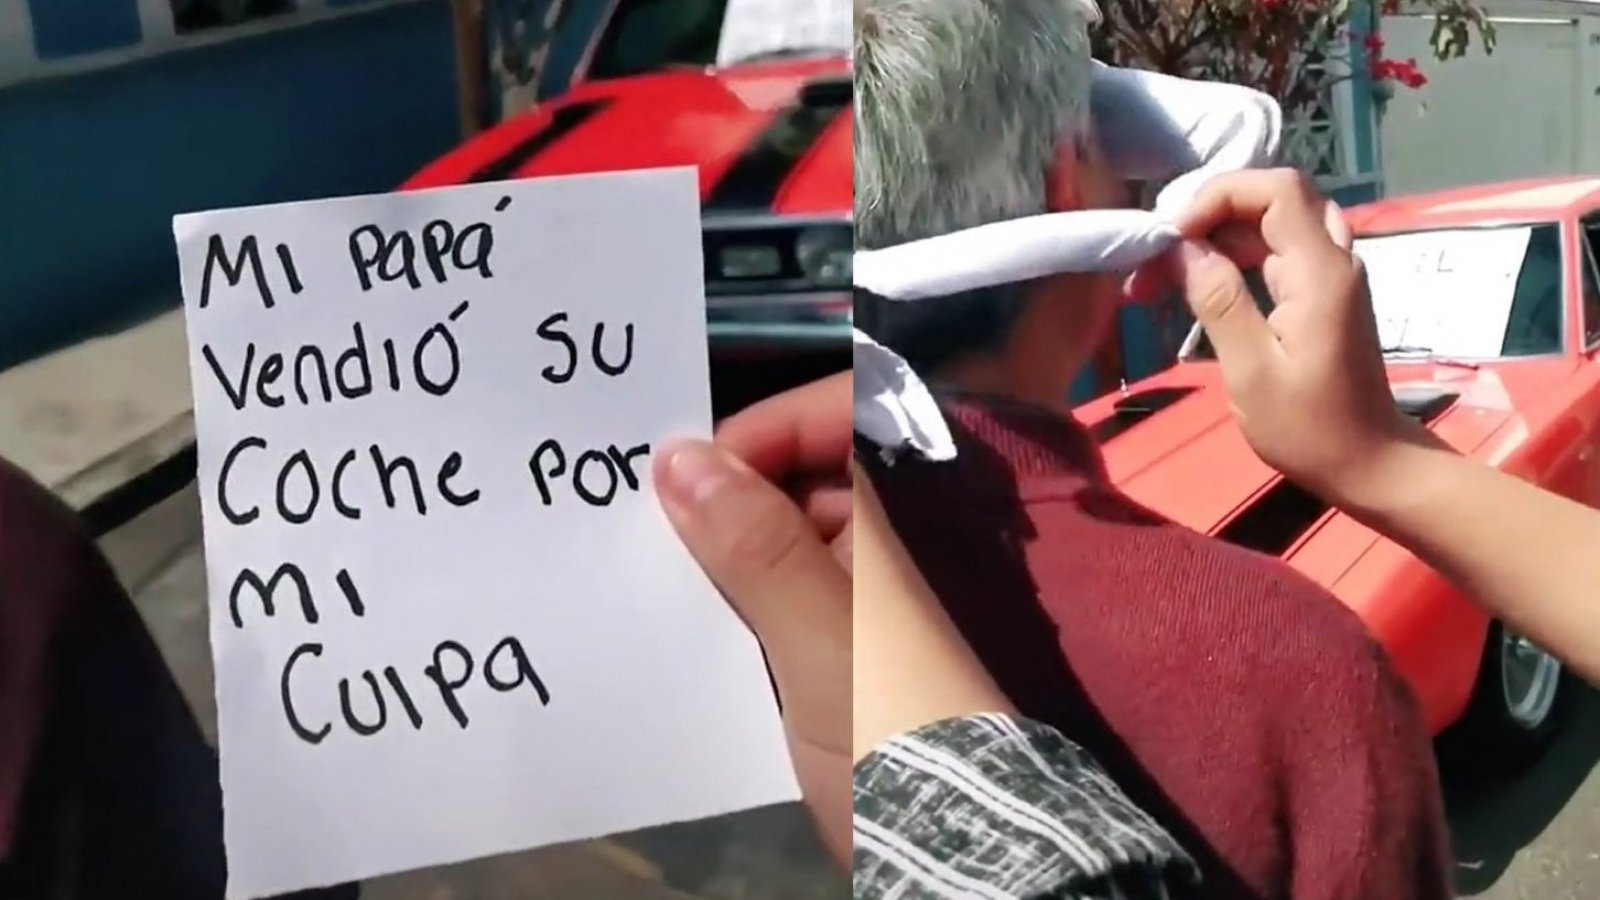 Mi papá
vendió su
coche por
mi
culpa
EL